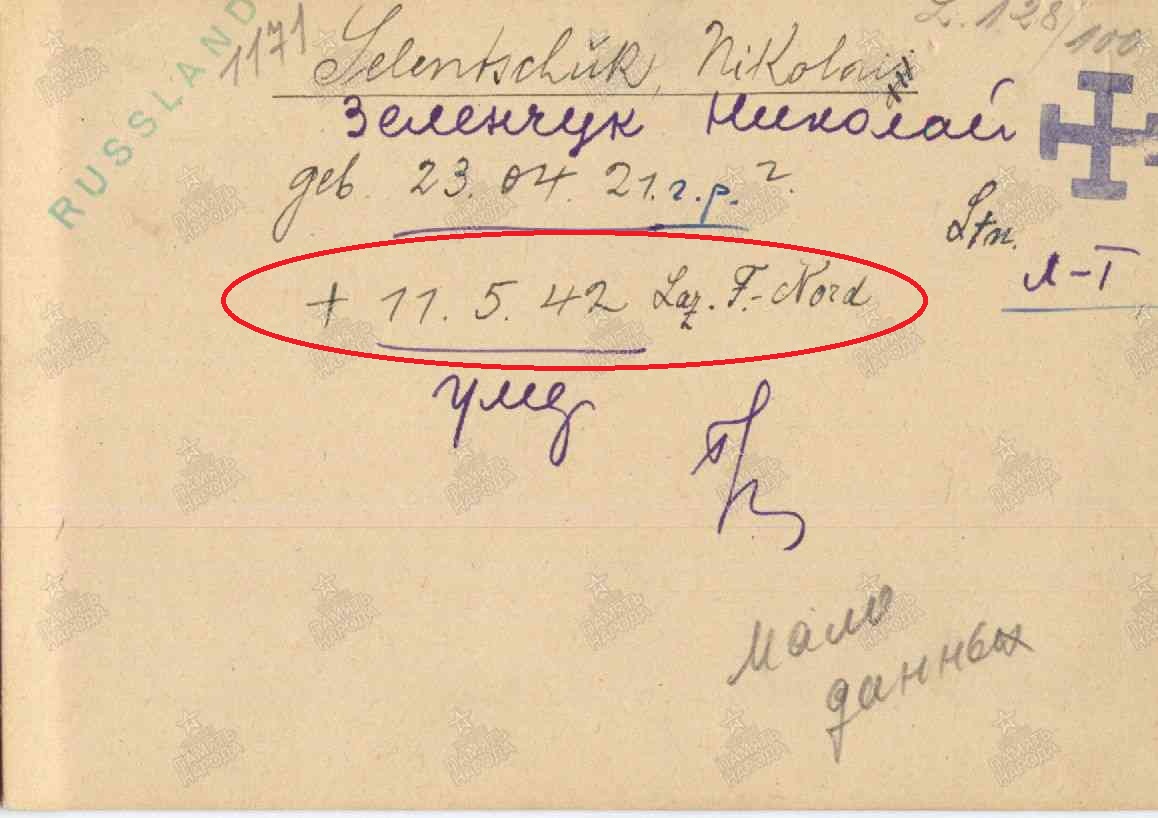 RUSSLAND
1171
Selentschuk, Nikolai
Зеленчук Николай
geb. 23. 04. 21. г.р. г.
Ltn.
л-т
+ 11. 5. 42 Laz. F.-Nord
Мало
данных
ПАМЯТЬ НАРОДА